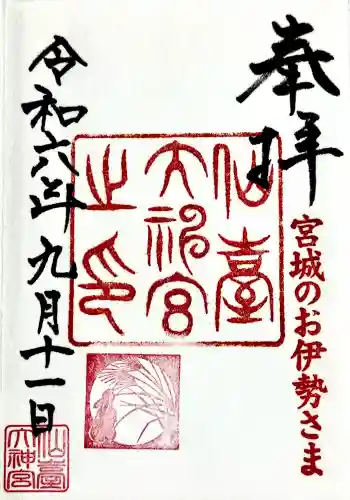 奉拝
宮城のお伊勢さま
仙臺
大神宮
之印
令和六年九月十一日
仙臺
大神宮